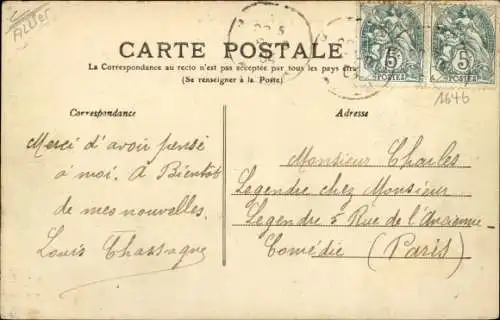 CARTE POSTALE
La Correspondance au recto n'est pas acceptée par tous les pays étra
(Se renseigner à la Poste)
Correspondance
Merci d'avoir pensé
à moi. A Bientôt
de mes nouvelles.
Louis
Adresse
Monsieur Charles
Legendre chez Monsieur
Legendre 5 Rue de l'Ancienne-
Comédie (Paris)
5
POSTES
5
POSTES
1646